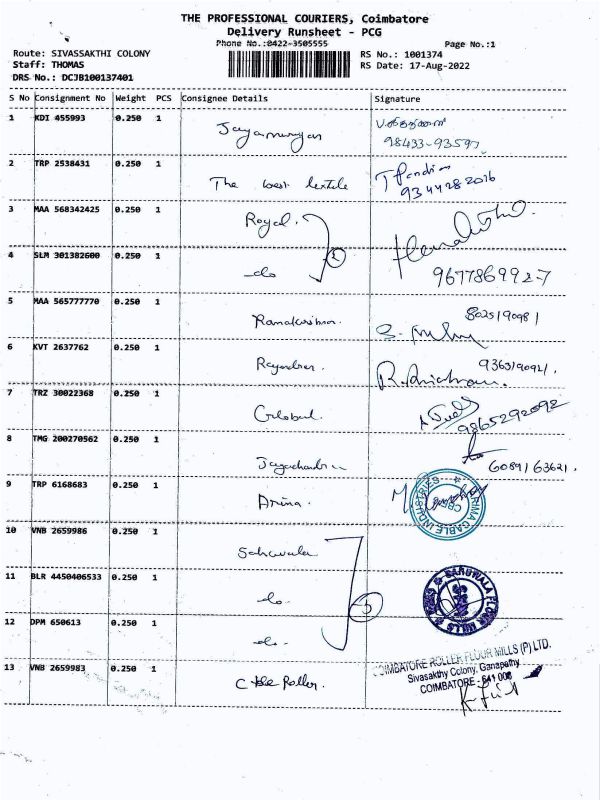 THE PROFESSIONAL COURIERS, Coimbatore
Delivery Runsheet - PCG
Phone No.:0422-3505555
Page No.:1
Route: SIVASSAKTHI COLONY
RS No.: 1001374
Staff: THOMAS
RS Date: 17-Aug-2022
DRS No.: DCJB100137401
S No Consignment No Weight PCS Consignee Details Signature
1 KDI 455993 0.250 1 Jayamurugan
98433-93597
2 TRP 2538431 0.250 1 The best textile
9344282016
3 MAA 568342425 0.250 1 Royal.
4 SLM 301382600 0.250 1 -do 2
9677869927
5 MAA 565777770 0.250 1 Ramakrishnan.
6 KVT 2637762 0.250 1 Rajendran.
7 TRZ 30022368 0.250 1 Global.
9865292092
8 TMG 200270562 0.250 1 Jayachandran
9 TRP 6168683 0.250 1 Arima.
ARIMA CABLE INDUSTRIES
CBE
10 VNB 2659986 0.250 1
11 BLR 4450406533 0.250 1 do. 3
FLOUR MILLS
12 DPM 650613 0.250 1 do.
13 VNB 2659983 0.250 1 Cbe Roller.
COIMBATORE ROLLER FLOUR MILLS (P) LTD.
Sivasakthy Colony, Ganapathy
COIMBATORE - 641 006